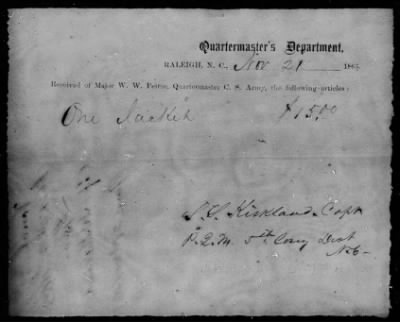 Quartermaster's Department,
RALEIGH, N. C., Nov 21 186
Received of Major W. W. Peirce, Quartermaster C. S. Army, the following articles:
One Jacket $15.00
Kirkland Capt
P. Q. M. 5th Cong Dist
N.C.